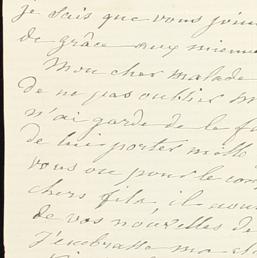 je sais que vous
de grâce aux miennes
Mon cher malade
de ne pas oublier
n'ai garde de le
de lui porter mille
vous ou pour le
chers fils, il
de vos nouvelles de
J'embrasse ma